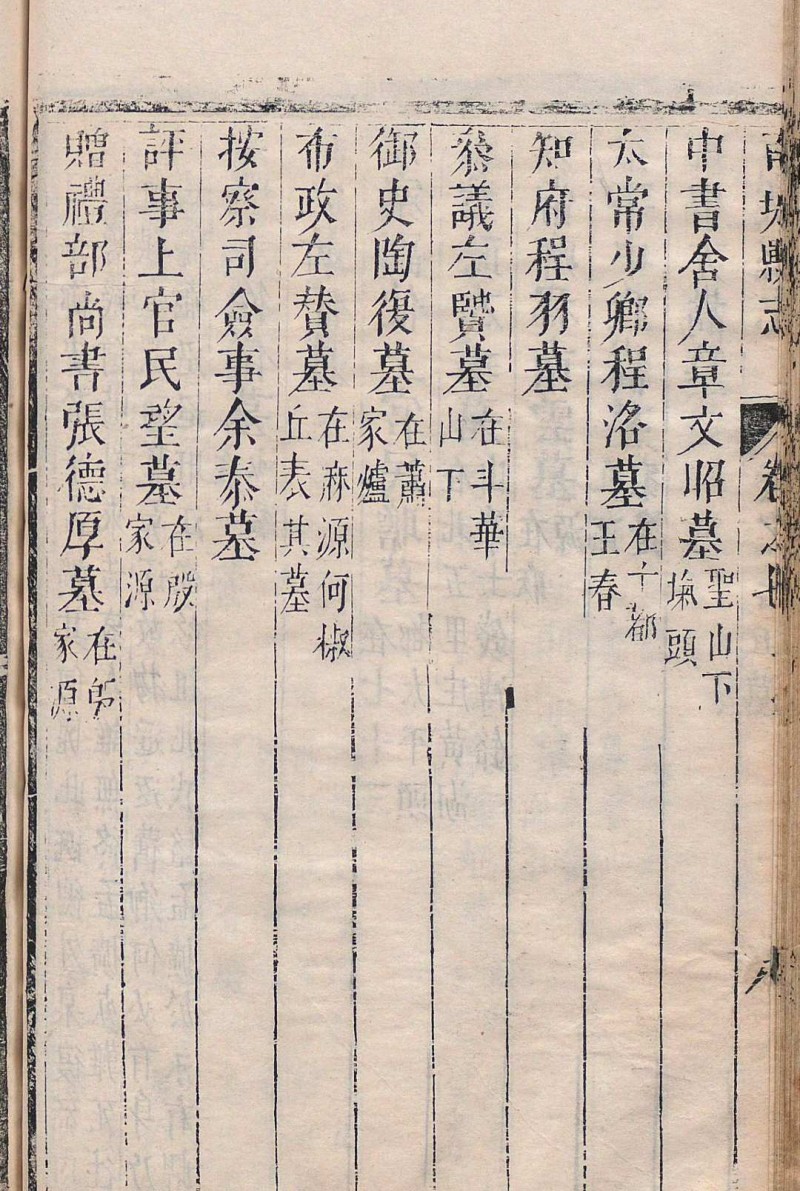 縣志
卷之
中書舍人章文昭墓 聖山下 塊頭
太常少卿程洛墓 在十都 王春
知府程羽墓
叅議左贒墓 在斗華 山下
御史陶復墓 在蕭 家爐
布政左賛墓 在麻源何椒 丘表其墓
按察司僉事余泰墓
評事上官民望墓 在殷 家源
贈禮部尚書張德厚墓 在 家源